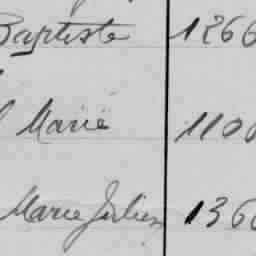 Baptiste 1266
Marie 1100
Marie Julien 1366